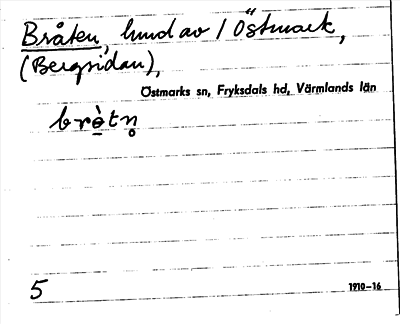 Bråten, hmd av 1 Östmark,
(Bergsidan),
Östmarks sn, Fryksdals hd, Värmlands län
brò̱tn̥
5
1910–16